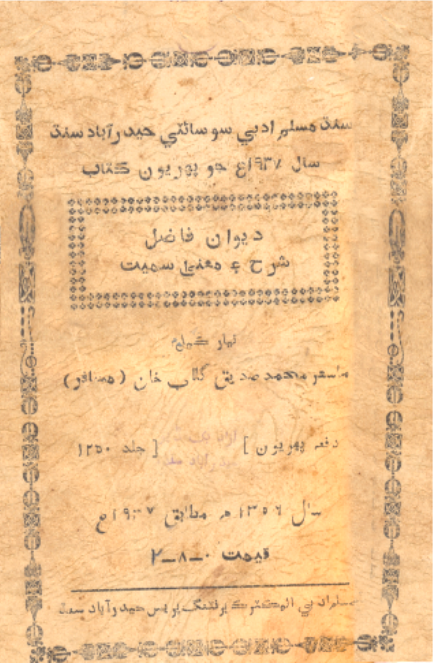 سنڌ مسلم ادبي سوسائٽي حيدرآباد سنڌ
سال ١٩٣٧ع جو پهريون ڪتاب
ديوان فاضل
شرح ۽ معنيٰ سميت
تيار ڪيل
ماستر محمد صديق گلاب خان (مسافر)
دفعہ پهريون] [جلد ١٢٥٠
سال ١٣٥٦ھ مطابق ١٩٣٧ع
قيمت ٠ــ٨ــ٢
مسلم ادبي اليڪٽرڪ پرنٽنگ پريس حيدرآباد سنڌ